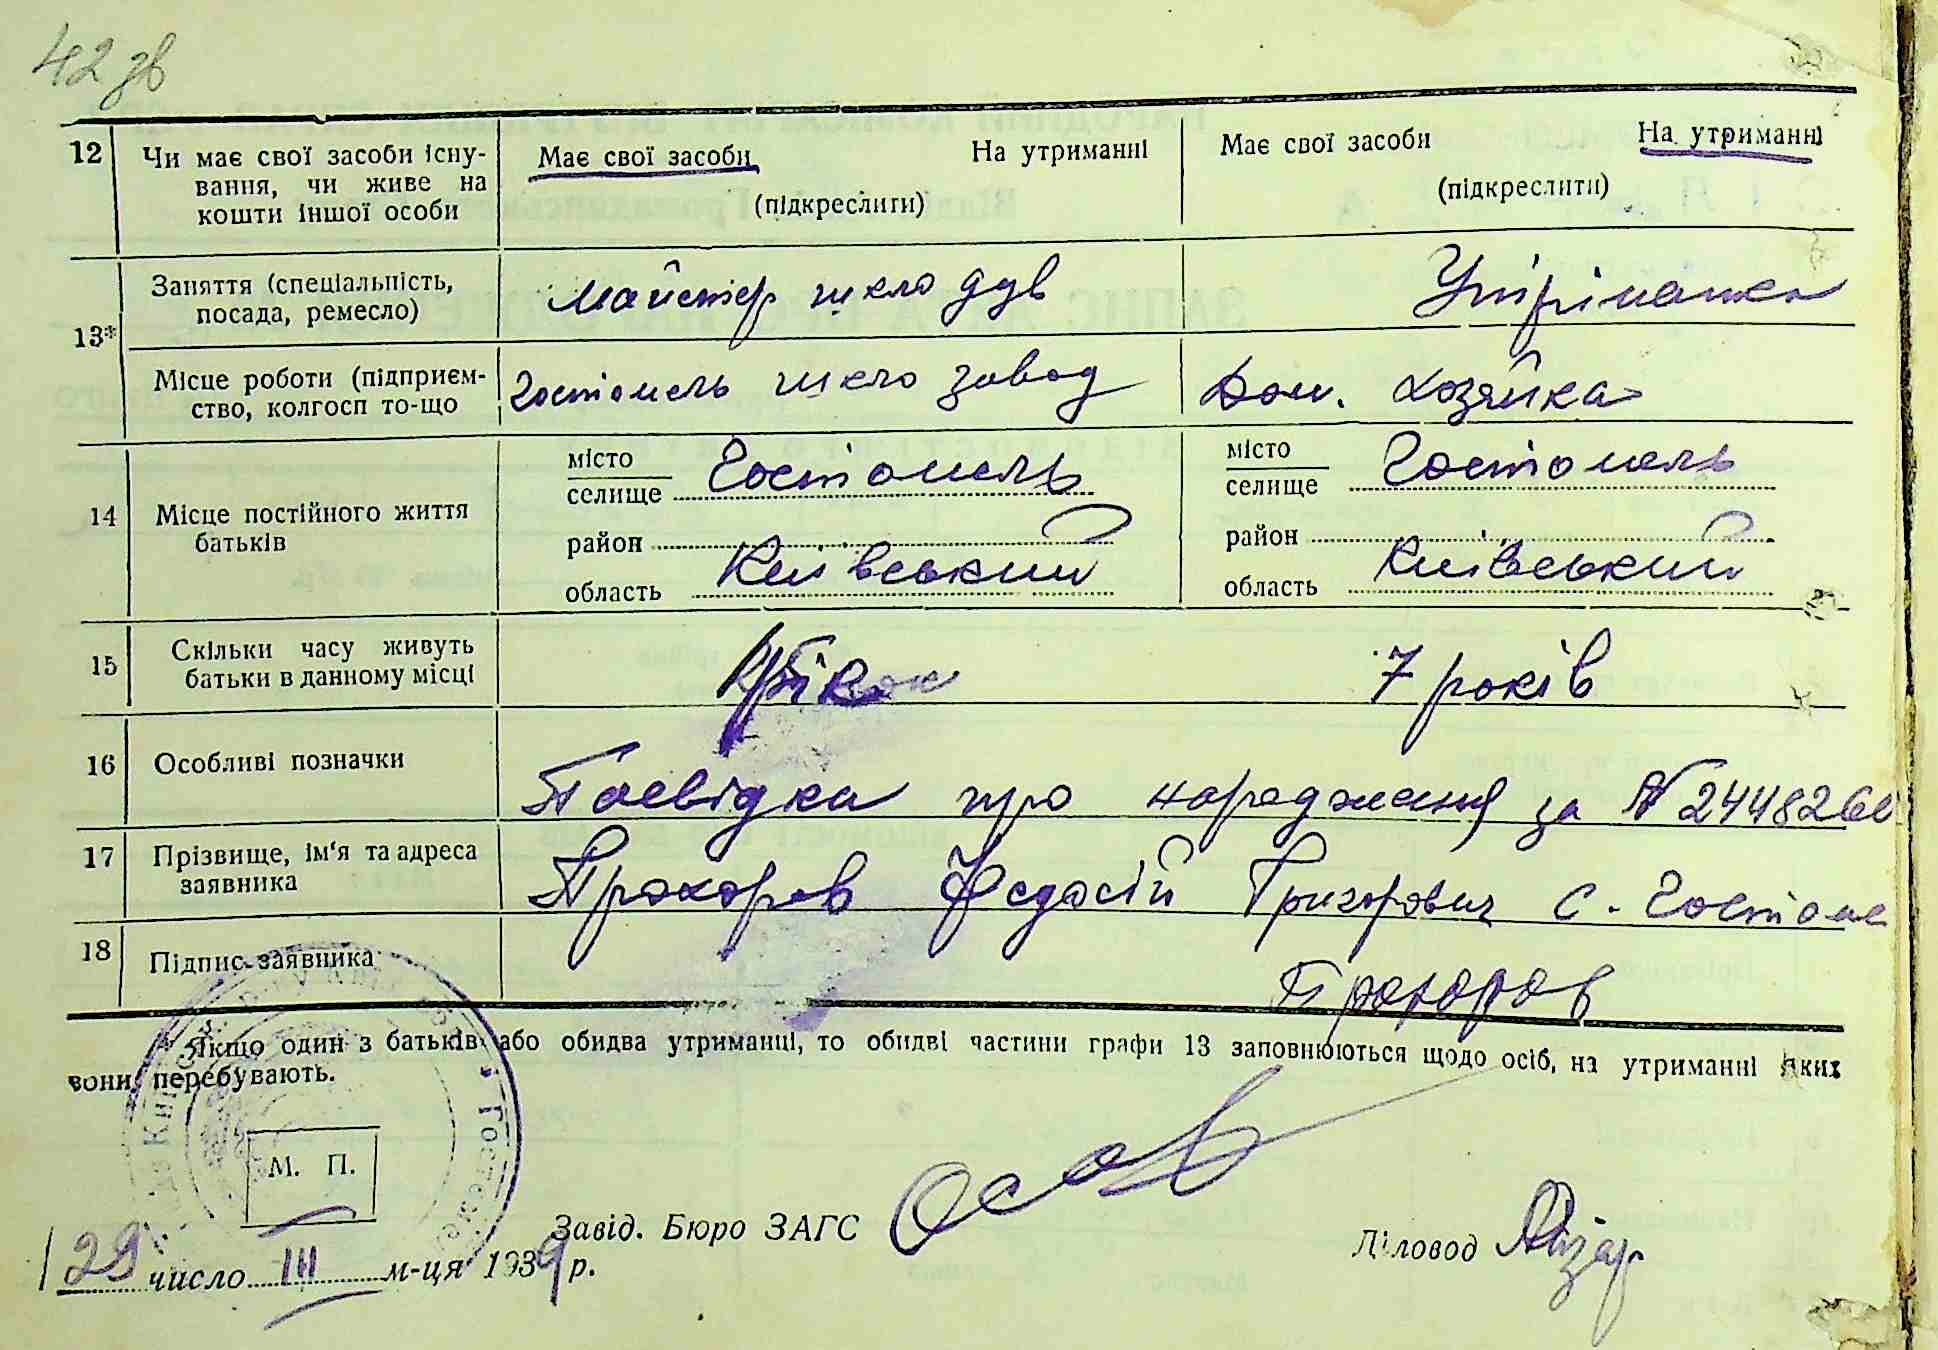 42 зв
12 Чи має свої засоби існу- Має свої засоби На утриманні Має свої засоби На утриманні
вання, чи живе на
кошти іншої особи (підкреслити) (підкреслити)
Заняття (спеціальність, Майстер шкло дув Утріманка
посада, ремесло)
13*
Місце роботи (підприєм- Гостомель шкло завод Дом. хозяйка
ство, колгосп то-що
місто Гостомель місто Гостомель
селище селище
14 Місце постійного життя
батьків район район
область Київський область Київський
15 Скільки часу живуть 7 років
батьки в данному місці
16 Особливі позначки Посвідка про народження за № 2448260
17 Прізвище, ім'я та адреса Прохоров Федосій Григорович с. Гостоме
заявника
18 Підпис заявника Прохоров
Якщо один з батьків або обидва утриманці, то обидві частини графи 13 заповнюються щодо осіб, на утриманні яких
вони перебувають.
М. П.
Завід. Бюро ЗАГС Діловод
29 число III м-ця 1939 р.